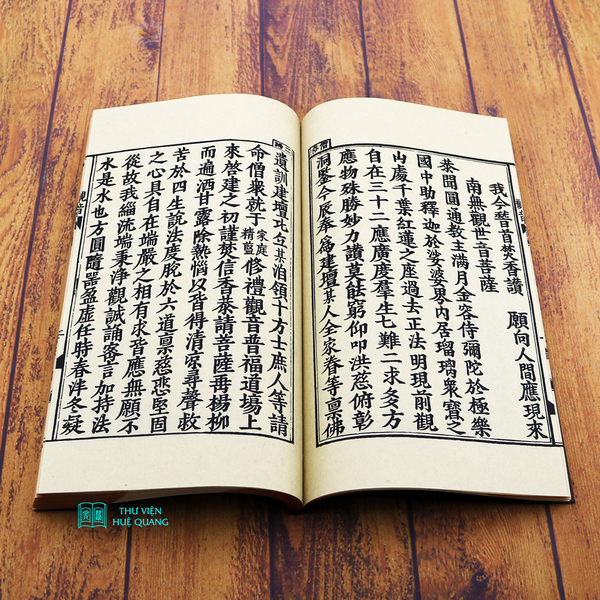 我今稽首焚香讚　願向人間應現來
南無觀世音菩薩
恭聞圓通教主滿月金容侍彌陀於極樂
國中助釋迦於娑婆界內居瑠璃衆寶之
山處千葉紅蓮之座過去正法明現前觀
自在三十二應廣度羣生七難二求多方
應物殊勝妙力讚莫能窮仰叩洪慈俯彰
洞鑒今辰奉為建壇某人全家眷等禀佛
遺訓建壇比丘某洎領十方士庶人等請
命僧衆就于家庭精藍修禮觀音普福道場上
來啓建之初謹焚信香恭請菩薩垂楊柳
而遍洒甘露除熱惱以皆得清凉尋聲救
苦於四生說法度脫於六道禀慈悲堅固
之心具自在端嚴之相有求皆應無願不
從故我緇流端秉淨觀誠誦密言加持法
水是水也方圓隨器盈虛任時春泮冬凝
THƯ VIỆN
HUỆ QUANG